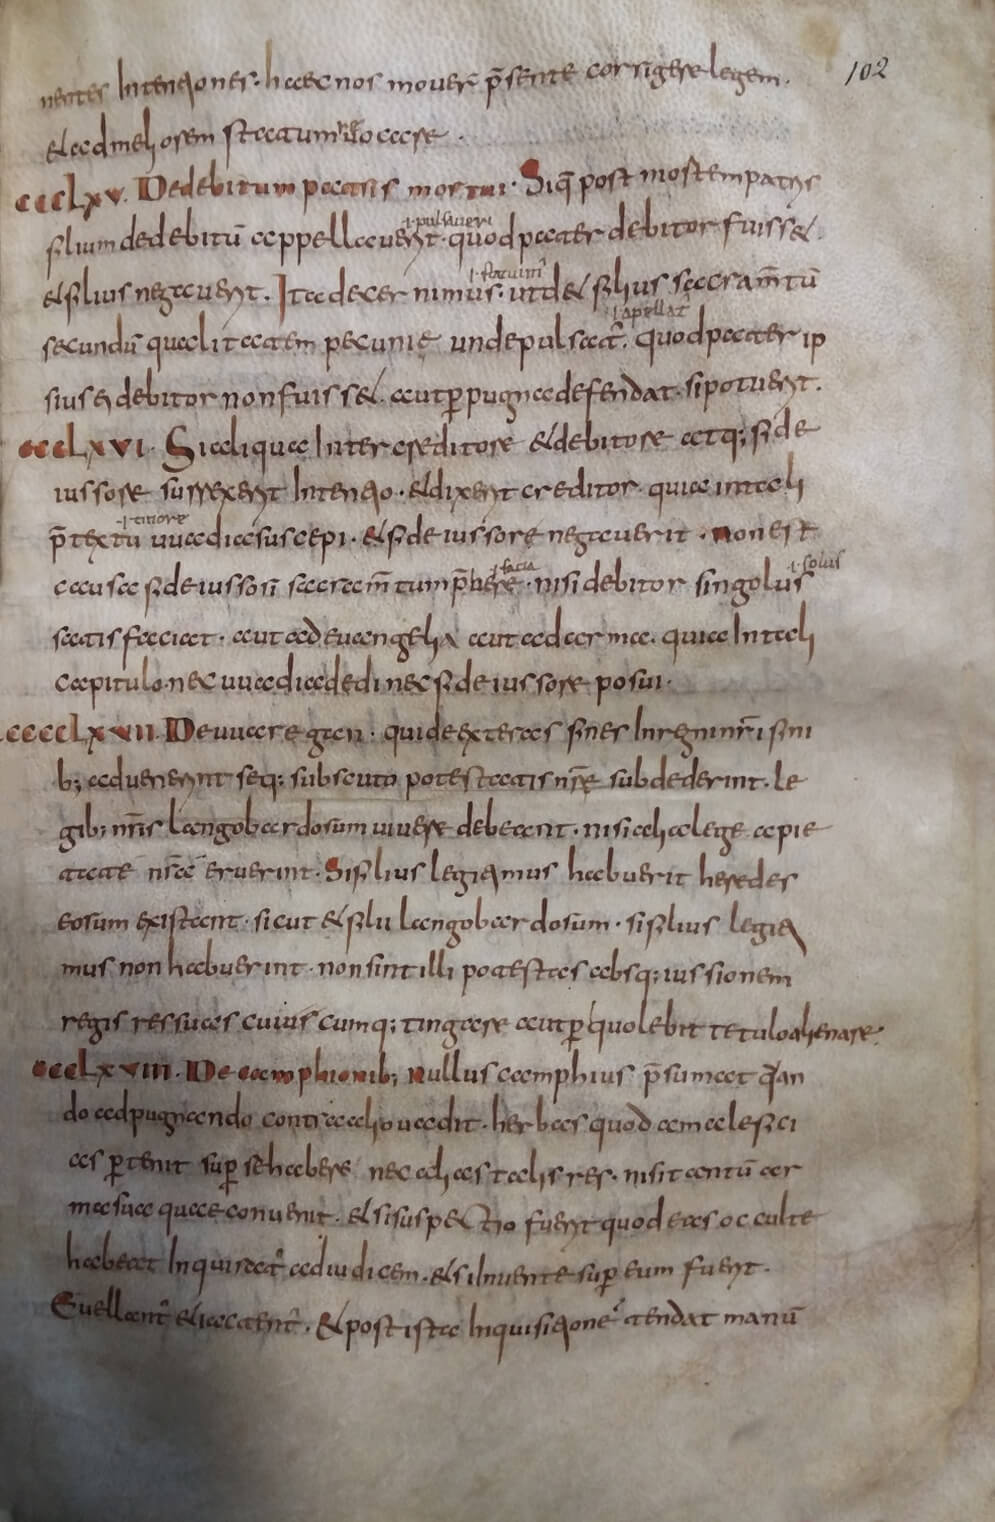 nentes Intentiones. haec nos mouer p̄sente corrigere legem.
102
et ad meliorem statum reuocare.
ccclxv. De debitum patris mortui. Siq̄ post mortem patris
filium de debitū appellauerit. quod pater debitor fuisset.
.i. pulsauerit
et filius negauerit. Ita decernimus. ut det filius sacram̄tū
.i. faciat
secundū qualitatem pecunie unde pulsat̄. quod pater ip
.i. apellat
sius ei debitor non fuisset. aut p pugna defendat. si potuerit.
ccclxvi. Si aliqua Inter creditore et debitore atq; fide
iussore surrexerit Intentio. et dixerit creditor. quia in tali
p̄textu uuadia suscepi. et fideiussore negauerit. non est
causa fideiussori sacram̄tum p̄bere. nisi debitor singolus
.i. facia
.i. solus
satisfaciat. aut ad euangelia aut ad arma. quia In tali
capitulo. nec uuadia dedi nec fideiussore posui.
ccclxvii. De uuaregan. qui de exteras fines In regni nr̄i fini
b; aduenerint seq; sub scuto potestatis nr̄e subdederint. le
gib; nr̄is langobardorum uiuere debeant. nisi alia lege a pie
tate nr̄a meruerint. Si filius legitimus habuerit heredes
eorum existant. sicut et filii langobardorum. si filius legiti
mus non habuerint. non sint illi potestas absq; iussionem
regis res suas cuiuscumq; tingare aut p quolebit tetulo alienare.
ccclxviii. De camphionib; nullus camphius p̄sumat q̄an
do ad pugnando contra alio uadit. herbas quod a maleficia
as p tenit sup se habere nec alias talis res. nisi tantū ar
ma sua quae conuenit. et si suspectio fuerit quod eas occulte
habeat Inquirat̄ ad iudicem. et si Inuente sup eum fuerit.
Euellant̄ et iactent̄. Et post ista Inquisitione tendat manū